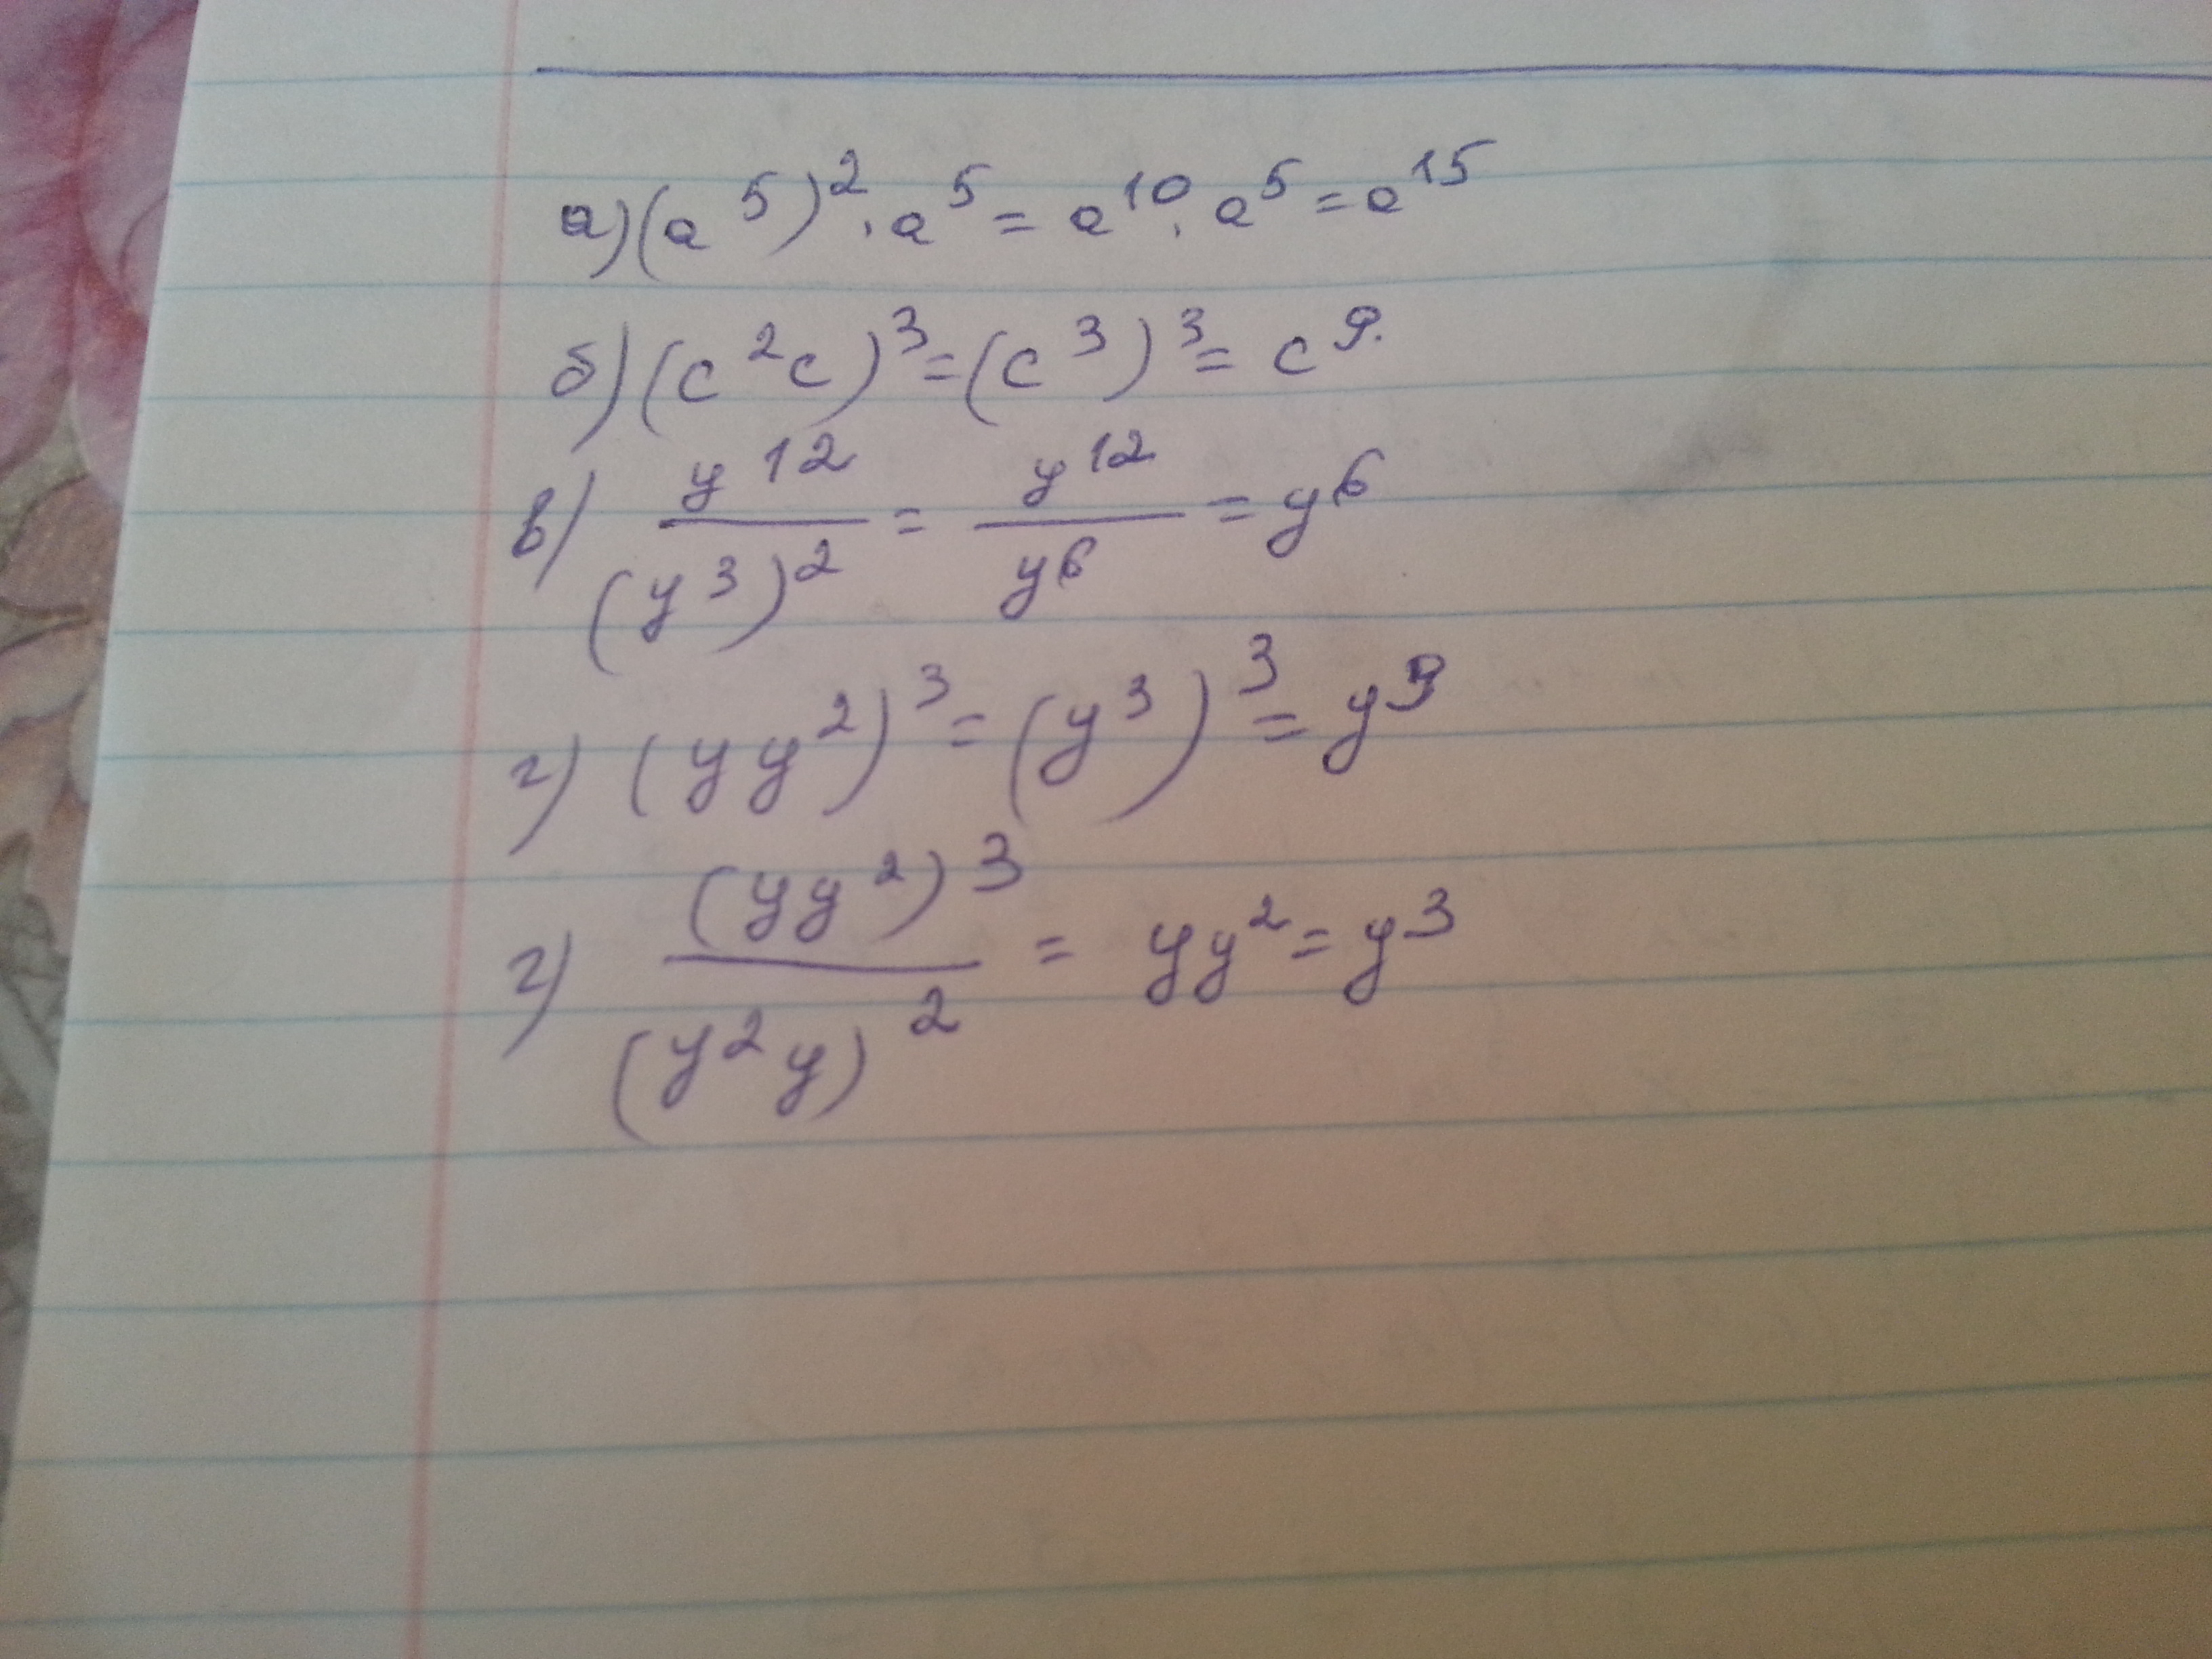 а) (a⁵)² · a⁵ = a¹⁰ · a⁵ = a¹⁵
б) (c²c)³ = (c³)³ = c⁹.
в) y¹² / (y³)² = y¹² / y⁶ = y⁶
г) (yy²)³ = (y³)³ = y⁹
г) (yy²)³ / (y²y)² = yy² = y³